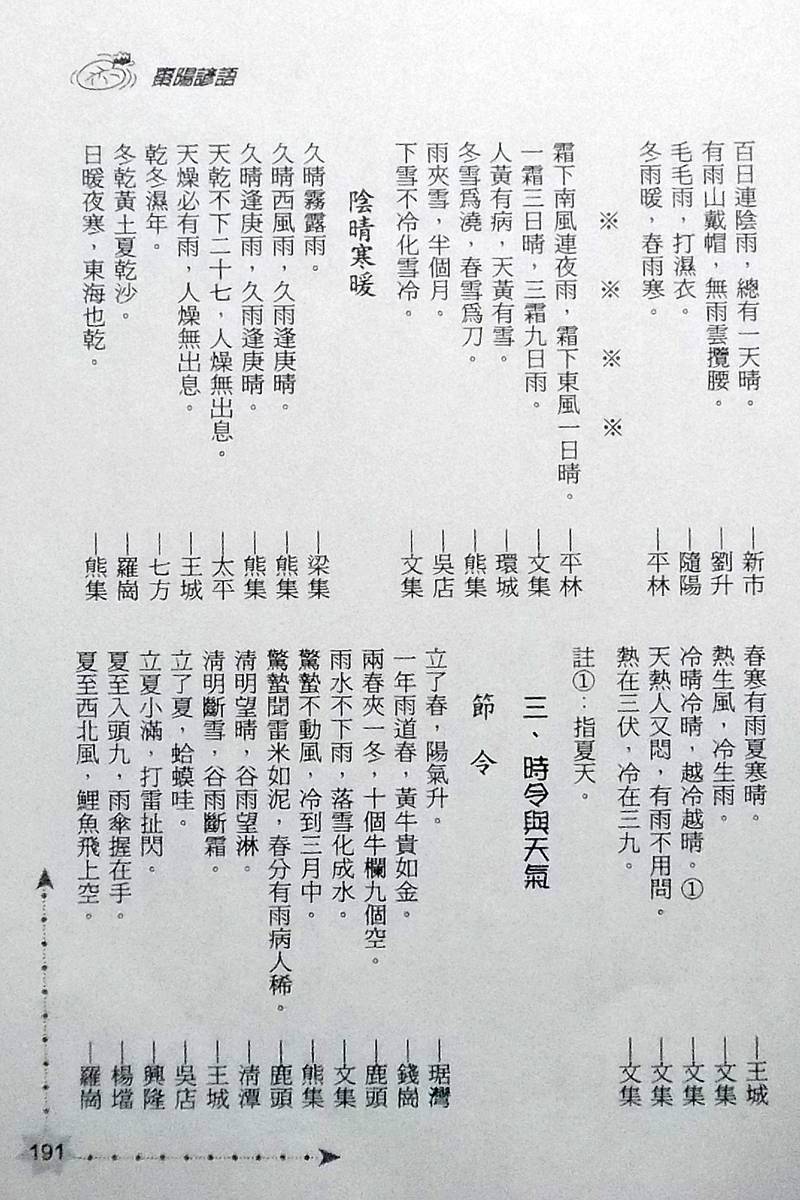 棗陽諺語
百日連陰雨，總有一天晴。——新市
有雨山戴帽，無雨雲攬腰。——劉升
毛毛雨，打濕衣。——隨陽
冬雨暖，春雨寒。——平林
※ ※ ※ ※
霜下南風連夜雨，霜下東風一日晴。——平林
一霜三日晴，三霜九日雨。——文集
人黃有病，天黃有雪。——環城
冬雪爲澆，春雪爲刀。——熊集
雨夾雪，半個月。——吳店
下雪不冷化雪冷。——文集
陰晴寒暖
久晴霧露雨。——梁集
久晴西風雨，久雨逢庚晴。——熊集
久晴逢庚雨，久雨逢庚晴。——熊集
天乾不下二十七，人燥無出息。——太平
天燥必有雨，人燥無出息。——王城
乾冬濕年。——七方
冬乾黃土夏乾沙。——羅崗
日暖夜寒，東海也乾。——熊集
春寒有雨夏寒晴。——王城
熱生風，冷生雨。——文集
冷晴冷晴，越冷越晴。①——文集
天熱人又悶，有雨不用問。——文集
熱在三伏，冷在三九。——文集
註①：指夏天。
三、時令與天氣
節令
立了春，陽氣升。——琚灣
一年雨道春，黃牛貴如金。——錢崗
兩春夾一冬，十個牛欄九個空。——鹿頭
雨水不下雨，落雪化成水。——文集
驚蟄不動風，冷到三月中。——熊集
驚蟄聞雷米如泥，春分有雨病人稀。——鹿頭
清明望晴，谷雨望淋。——清潭
清明斷雪，谷雨斷霜。——王城
立了夏，蛤蟆哇。——吳店
立夏小滿，打雷扯閃。——興隆
夏至入頭九，雨傘握在手。——楊壋
夏至西北風，鯉魚飛上空。——羅崗
191